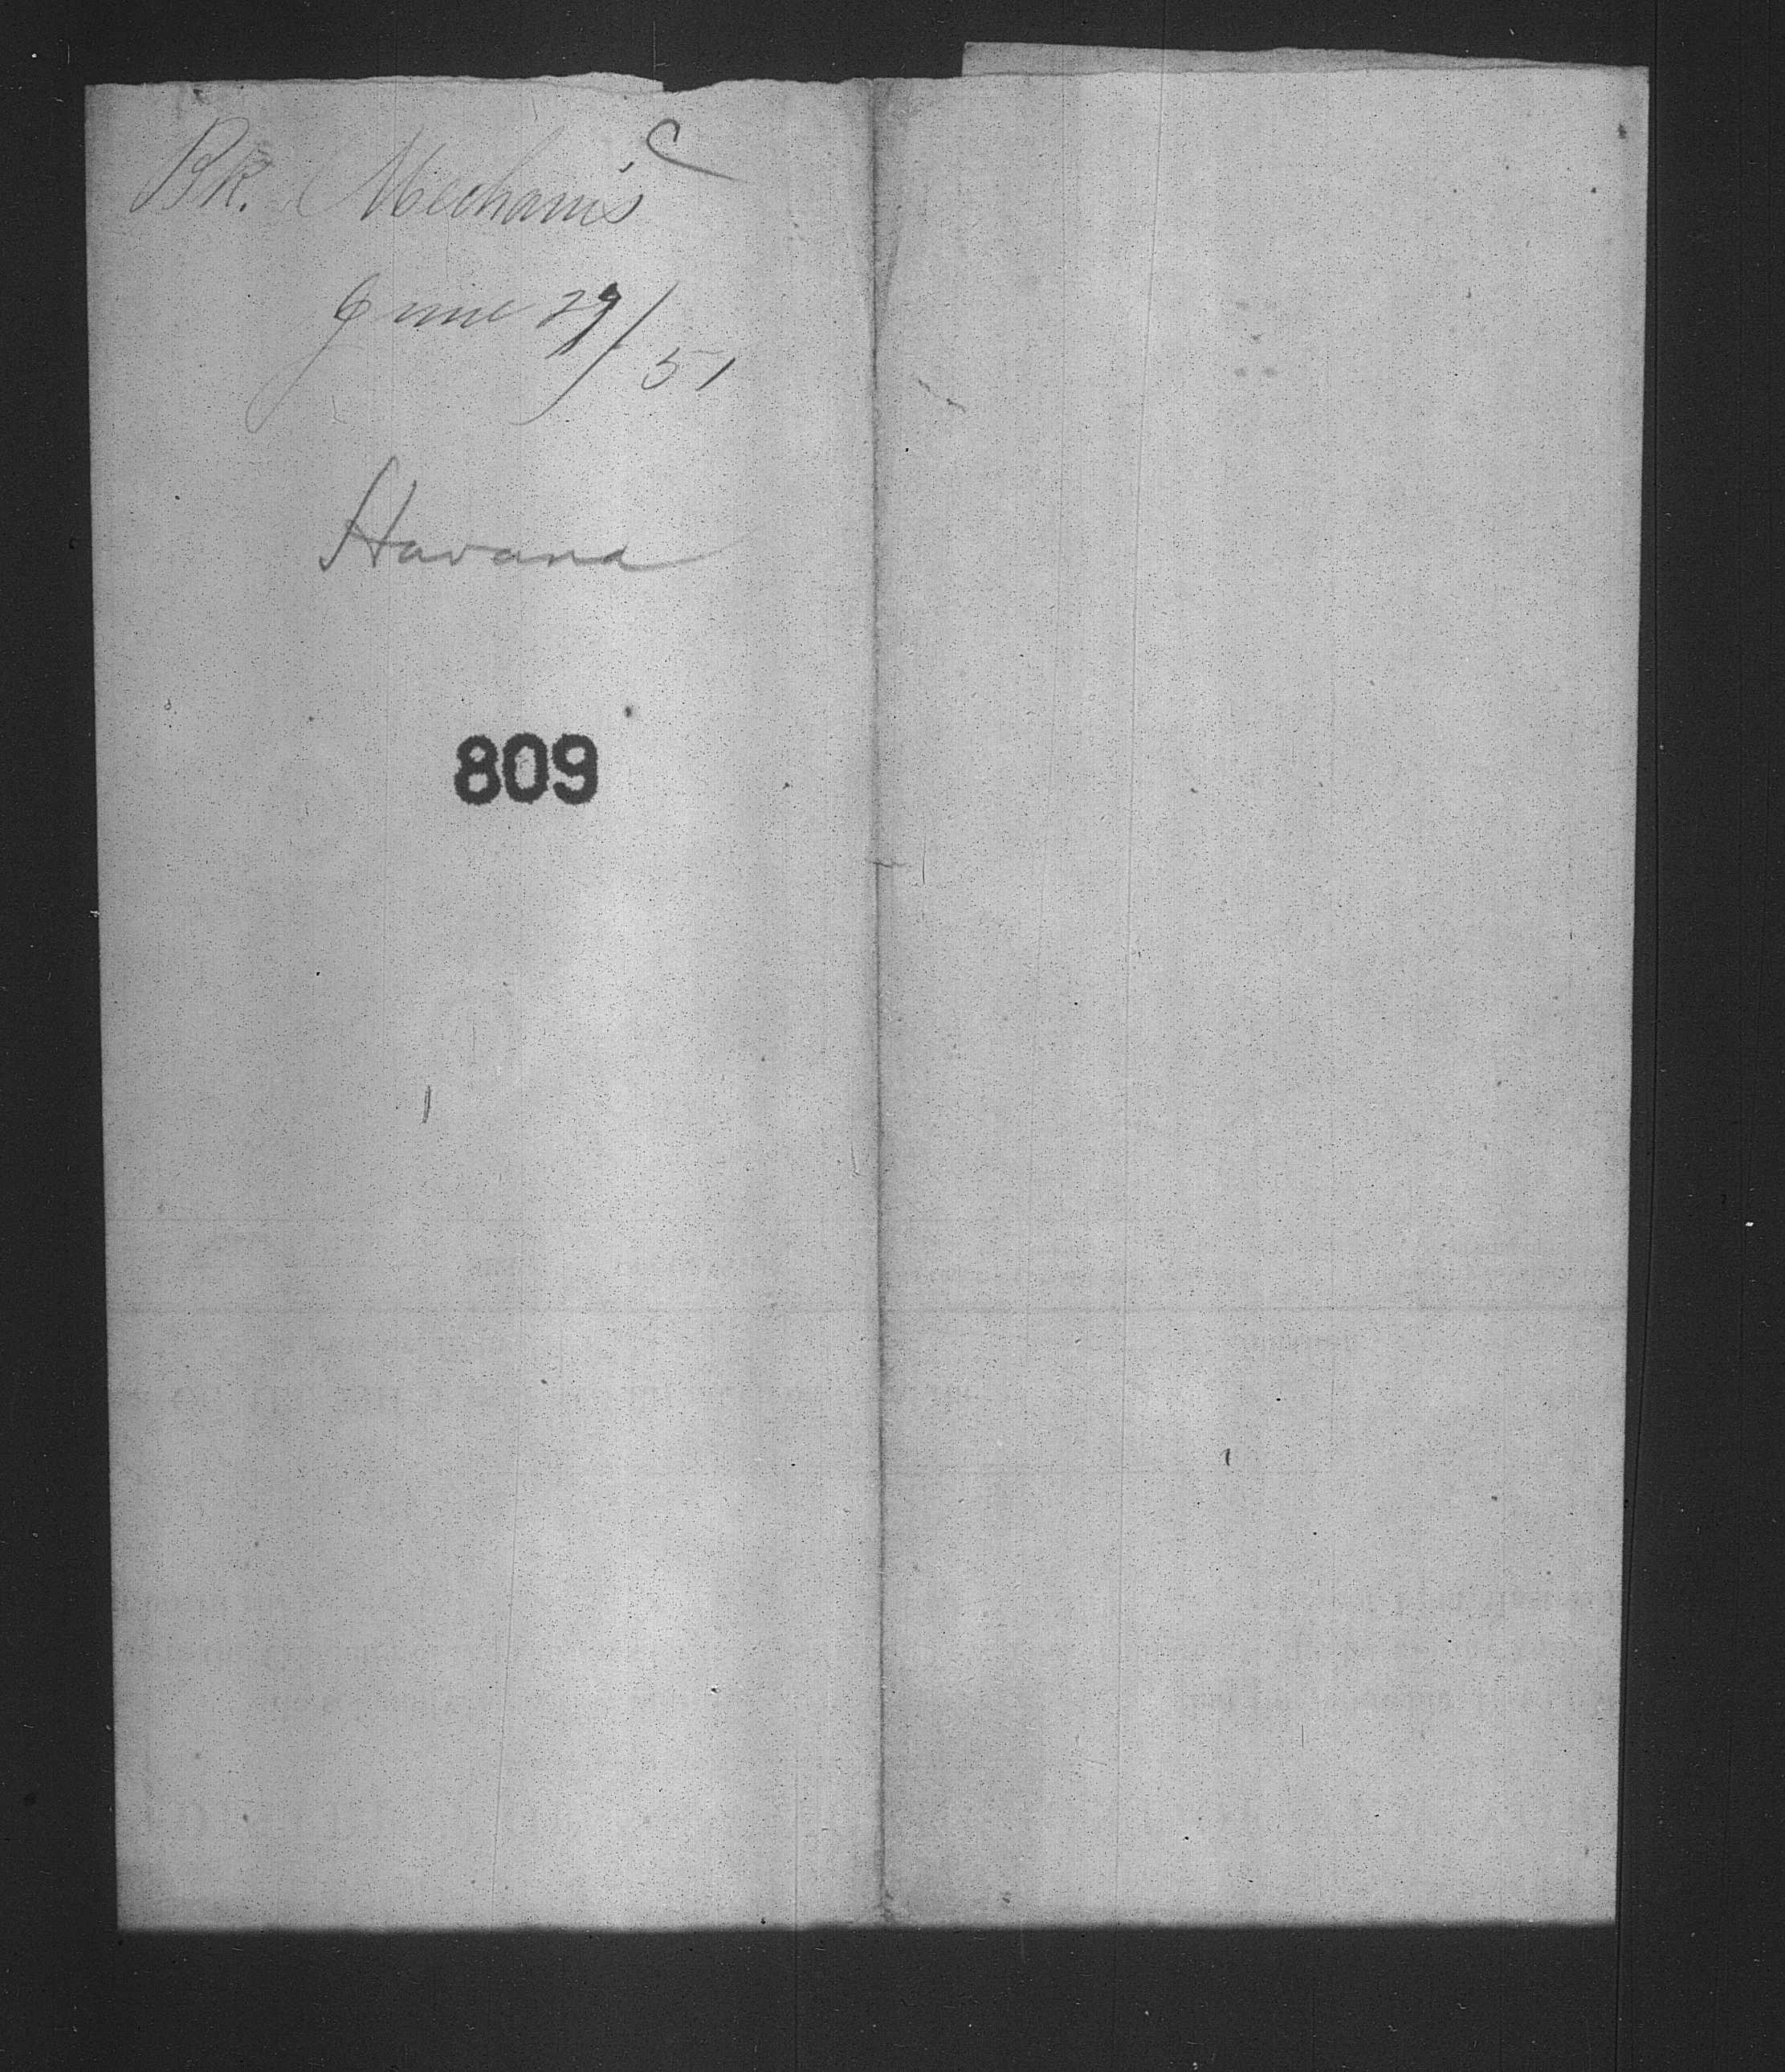 Bk. Mechanic's
June 29/51
Havana
809